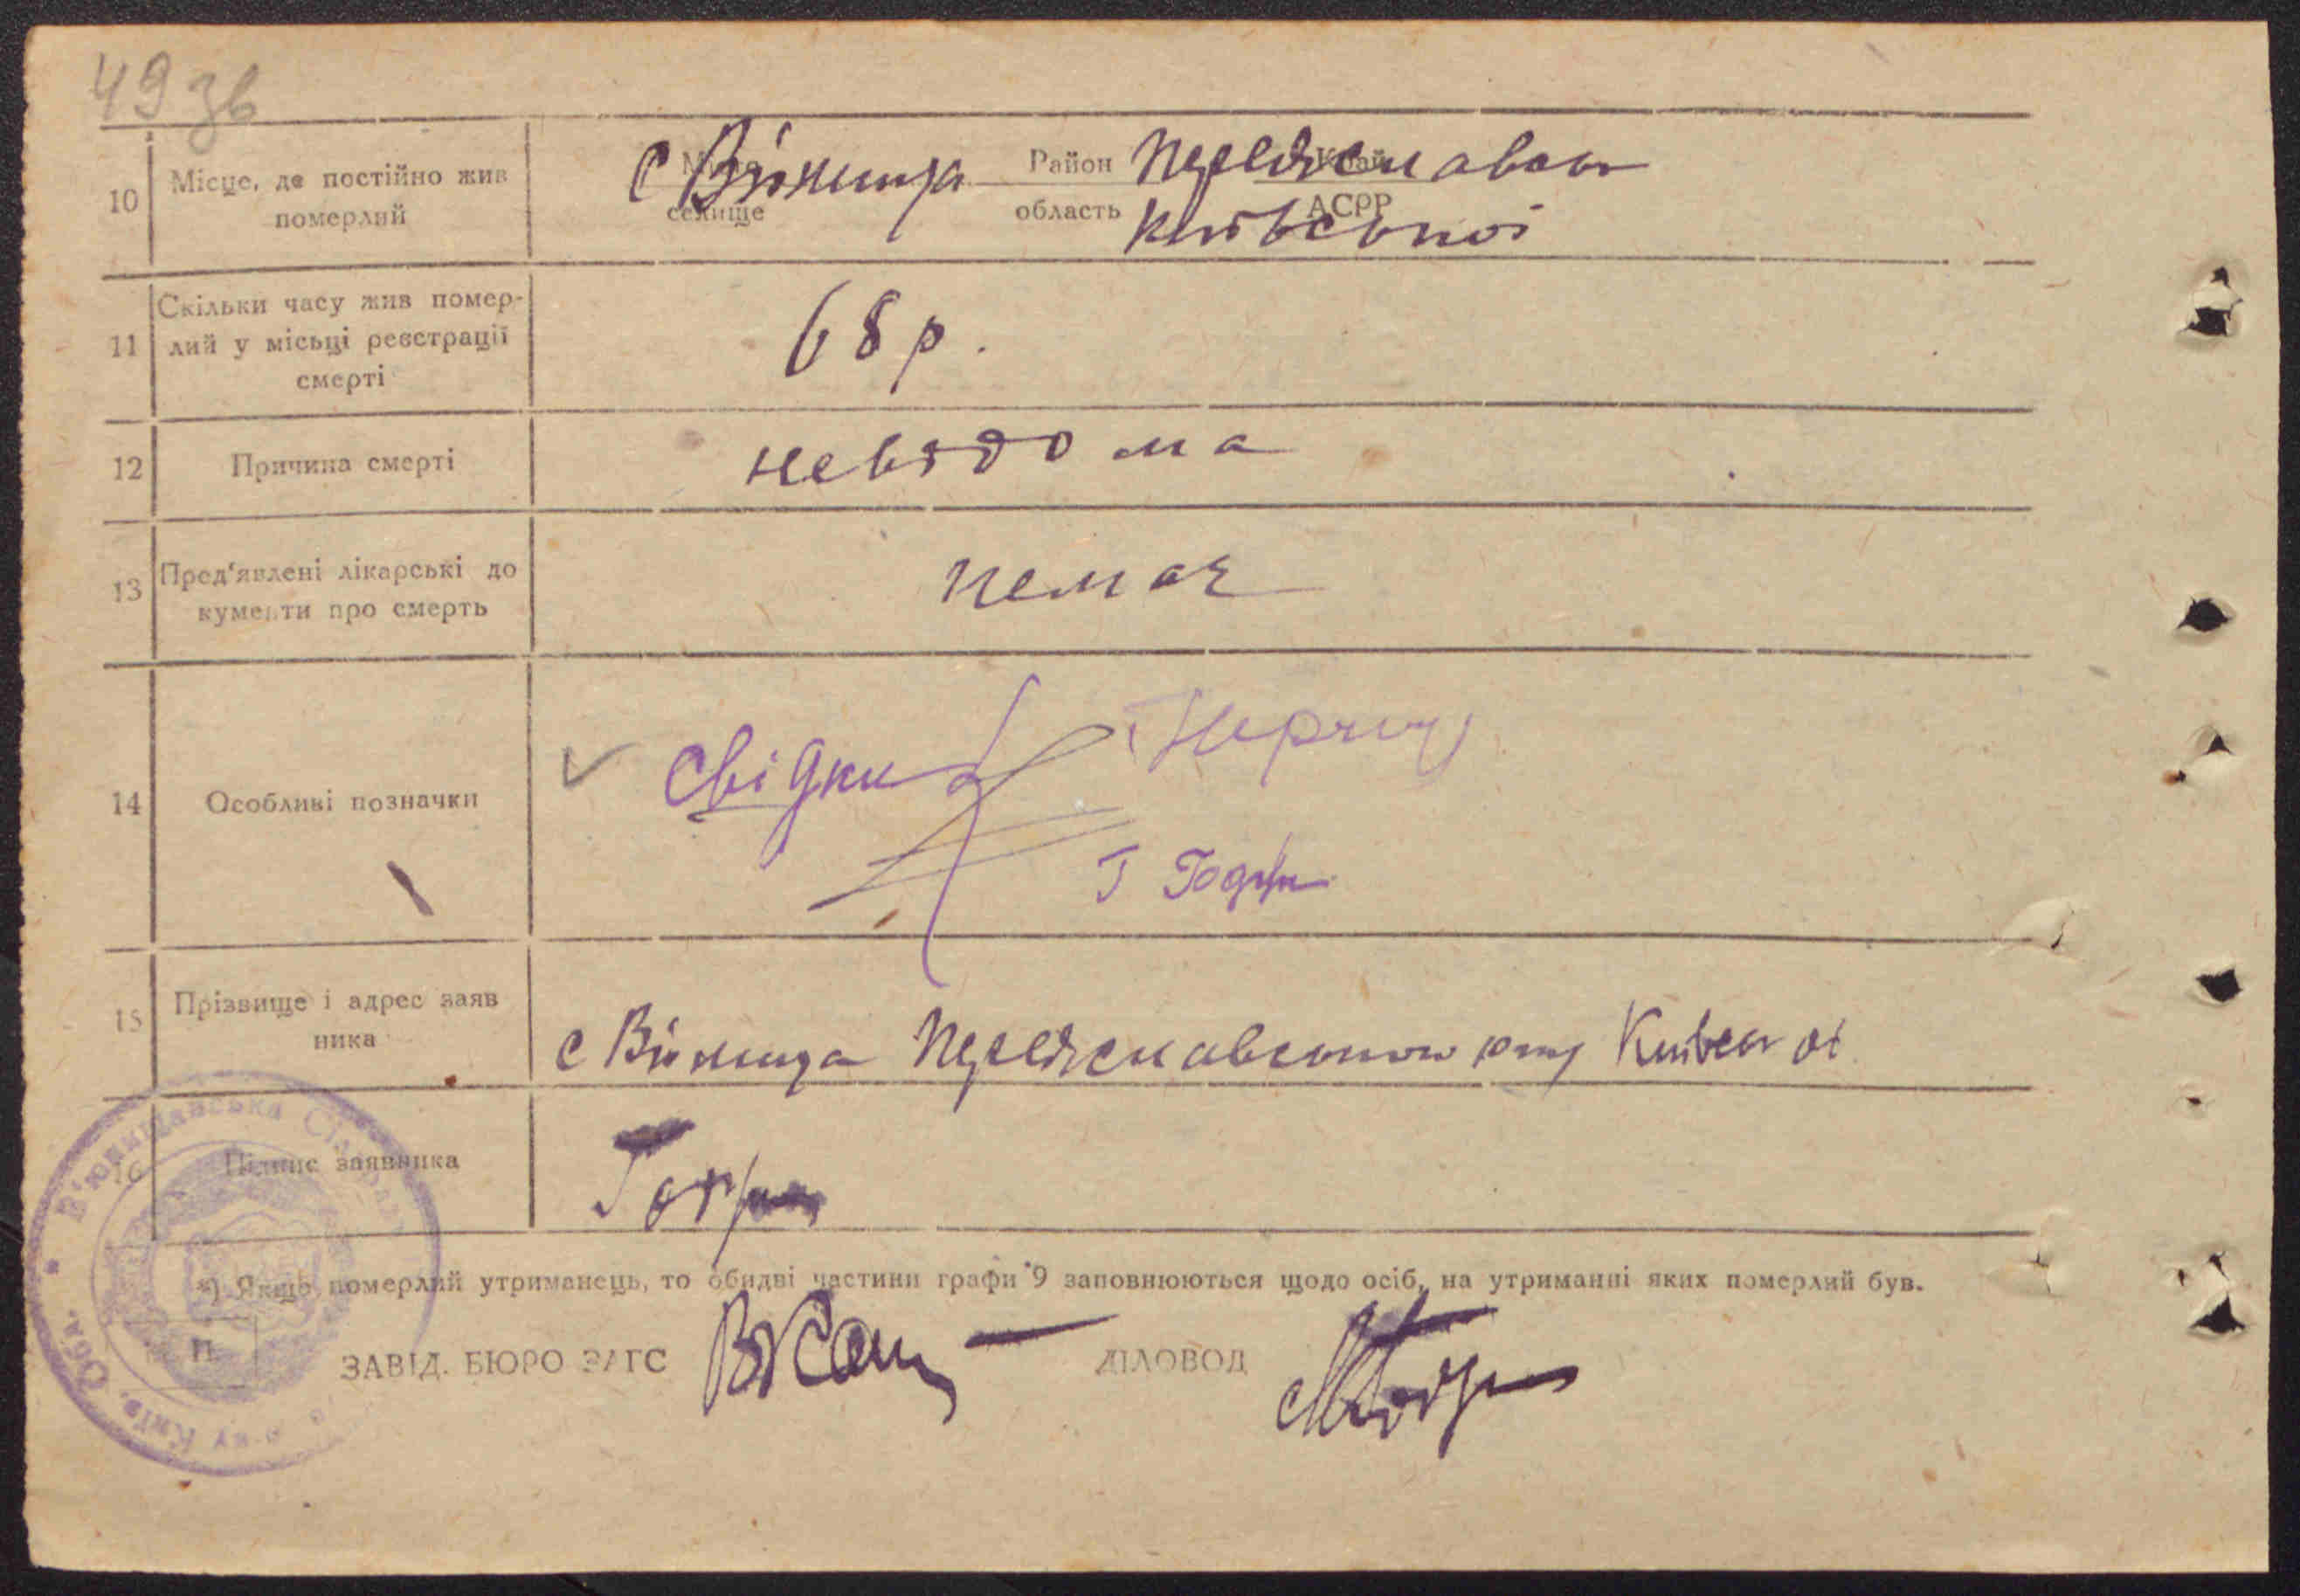 49 зв
10 Місце, де постійно жив померлий
Місто селище с Вюнища Район область Переяславськ Край АСРР
Київської
11 Скільки часу жив помер-
лий у місьці реєстрації
смерті
68 р.
12 Причина смерті
невідома
13 Пред'явлені лікарські до
кументи про смерть
немає
14 Особливі позначки
Свідки
Г
15 Прізвище і адрес заяв
ника
с Вюнища Переяславського р-ну Київськ об
16 Підпис заявника
*) Якщо померлий утриманець, то обидві частини графи 9 заповнюються щодо осіб, на утриманні яких померлий був.
П.
ЗАВІД. БЮРО ЗАГС
ДІЛОВОД
Обл.